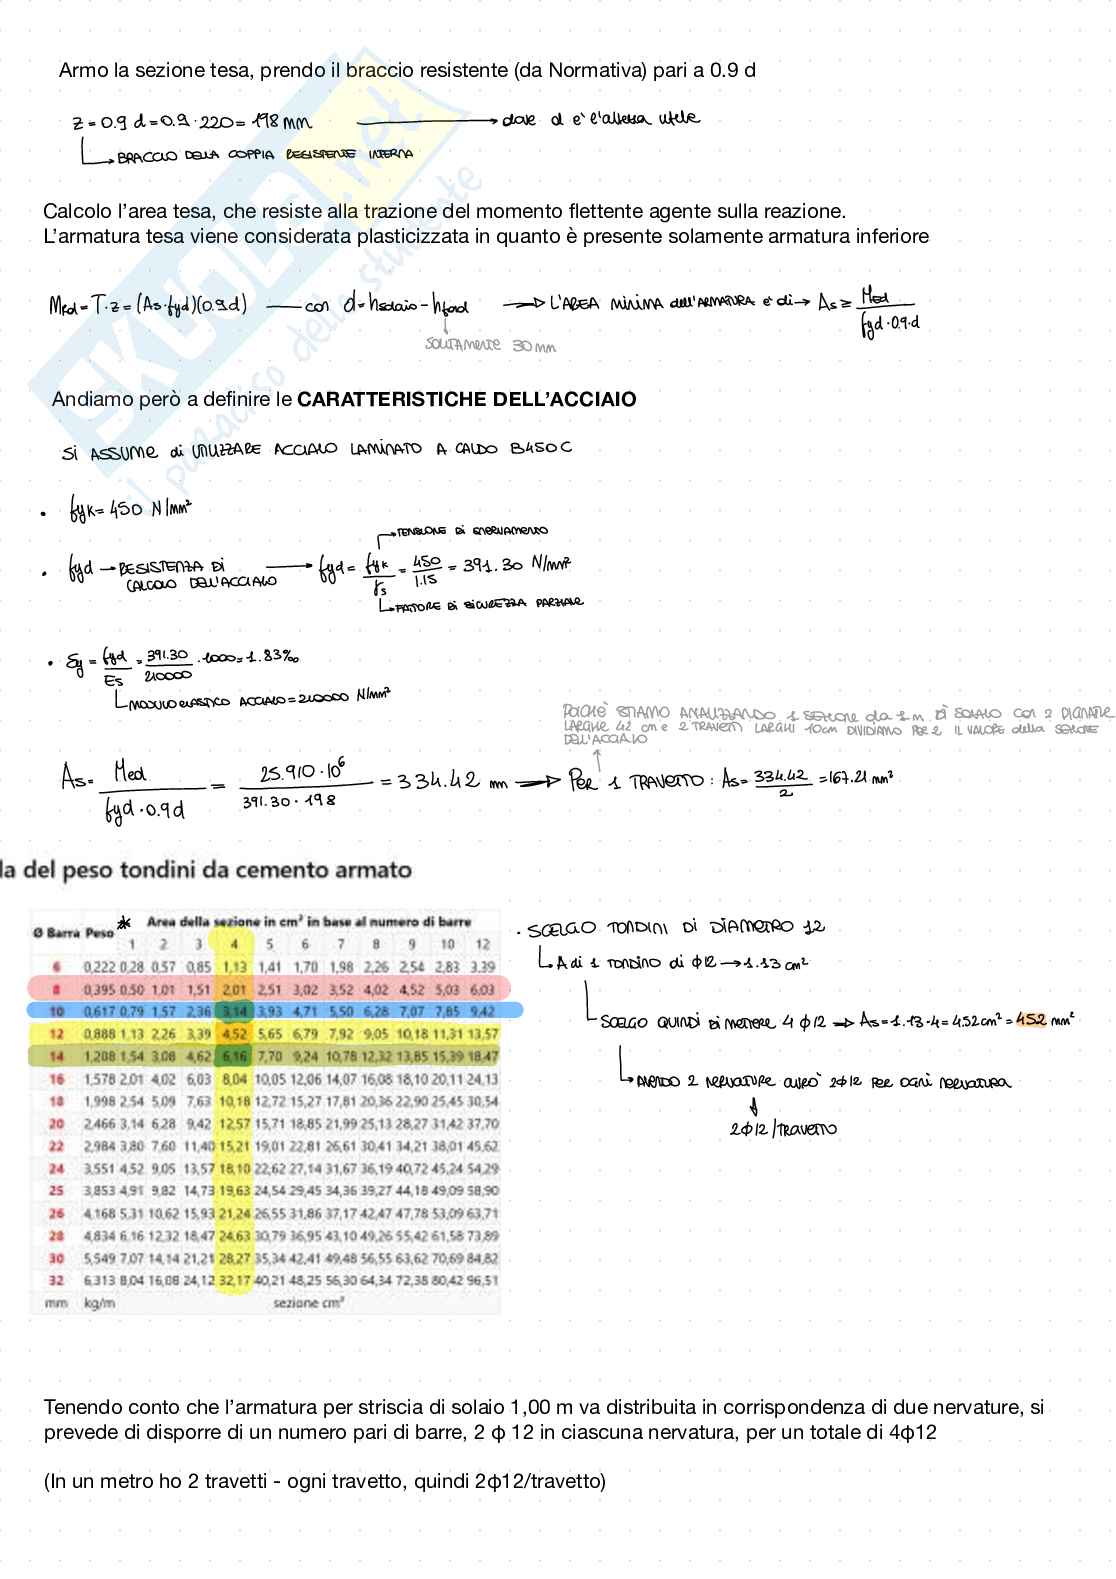 Armo la sezione tesa, prendo il braccio resistente (da Normativa) pari a 0.9 d
z = 0.9 d = 0.9 · 220 = 198 mm → dove d e' l'altezza utile
↳ BRACCIO DELLA COPPIA RESISTENTE INTERNA
Calcolo l'area tesa, che resiste alla trazione del momento flettente agente sulla reazione.
L'armatura tesa viene considerata plasticizzata in quanto è presente solamente armatura inferiore
MRd = T · z = (As · fyd)(0.9d) — con d = hsolaio - hfond → L'AREA MINIMA dell'ARMATURA e' di → As ≥ Med / fyd · 0.9 · d
SOLITAMENTE 30 mm
Andiamo però a definire le CARATTERISTICHE DELL'ACCIAIO
Si ASSUME di UTILIZZARE ACCIAIO LAMINATO A CALDO B450C
• fyk = 450 N/mm²
→ TENSIONE DI SNERVAMENTO
• fyd → RESISTENZA DI CALCOLO DELL'ACCIAIO → fyd = fyk / γs = 450 / 1.15 = 391.30 N/mm²
↳ FATTORE DI SICUREZZA PARZIALE
• εy = fyd / Es = 391.30 / 210000 · 1000 = 1.83‰
↳ MODULO ELASTICO ACCIAIO = 210000 N/mm²
POICHÈ STIAMO ANALIZZANDO 1 SEZIONE da 1 m DI SOLAIO CON 2 PIGNATTE
LARGHE 42 cm e 2 TRAVETTI LARGHI 10cm DIVIDIAMO PER 2 IL VALORE della SEZIONE
DELL'ACCIAIO
As = Med / fyd · 0.9d = 25.910 · 10⁶ / 391.30 · 198 = 334.42 mm → PER 1 TRAVETTO: As = 334.42 / 2 = 167.21 mm²
la del peso tondini da cemento armato
Ø Barra Peso * Area della sezione in cm² in base al numero di barre
1 2 3 4 5 6 7 8 9 10 12
6 0,222 0,28 0,57 0,85 1,13 1,41 1,70 1,98 2,26 2,54 2,83 3,39
8 0,395 0,50 1,01 1,51 2,01 2,51 3,02 3,52 4,02 4,52 5,03 6,03
10 0,617 0,79 1,57 2,36 3,14 3,93 4,71 5,50 6,28 7,07 7,85 9,42
12 0,888 1,13 2,26 3,39 4,52 5,65 6,79 7,92 9,05 10,18 11,31 13,57
14 1,208 1,54 3,08 4,62 6,16 7,70 9,24 10,78 12,32 13,85 15,39 18,47
16 1,578 2,01 4,02 6,03 8,04 10,05 12,06 14,07 16,08 18,10 20,11 24,13
18 1,998 2,54 5,09 7,63 10,18 12,72 15,27 17,81 20,36 22,90 25,45 30,54
20 2,466 3,14 6,28 9,42 12,57 15,71 18,85 21,99 25,13 28,27 31,42 37,70
22 2,984 3,80 7,60 11,40 15,21 19,01 22,81 26,61 30,41 34,21 38,01 45,62
24 3,551 4,52 9,05 13,57 18,10 22,62 27,14 31,67 36,19 40,72 45,24 54,29
25 3,853 4,91 9,82 14,73 19,63 24,54 29,45 34,36 39,27 44,18 49,09 58,90
26 4,168 5,31 10,62 15,93 21,24 26,55 31,86 37,17 42,47 47,78 53,09 63,71
28 4,834 6,16 12,32 18,47 24,63 30,79 36,95 43,10 49,26 55,42 61,58 73,89
30 5,549 7,07 14,14 21,21 28,27 35,34 42,41 49,48 56,55 63,62 70,69 84,82
32 6,313 8,04 16,08 24,12 32,17 40,21 48,25 56,30 64,34 72,38 80,42 96,51
mm kg/m sezione cm²
· SCELGO TONDINI DI DIAMETRO 12
↳ A di 1 TONDINO di ϕ12 → 1.13 cm²
↳ SCELGO QUINDI DI METTERE 4 ϕ12 → As = 1.13 · 4 = 4.52 cm² = 452 mm²
↳ AVENDO 2 NERVATURE AVRO' 2ϕ12 PER OGNI NERVATURA
2ϕ12/TRAVETTO
Tenendo conto che l'armatura per striscia di solaio 1,00 m va distribuita in corrispondenza di due nervature, si
prevede di disporre di un numero pari di barre, 2 ϕ 12 in ciascuna nervatura, per un totale di 4ϕ12
(In un metro ho 2 travetti - ogni travetto, quindi 2ϕ12/travetto)
SKUOLA.net
il paradiso dello studente